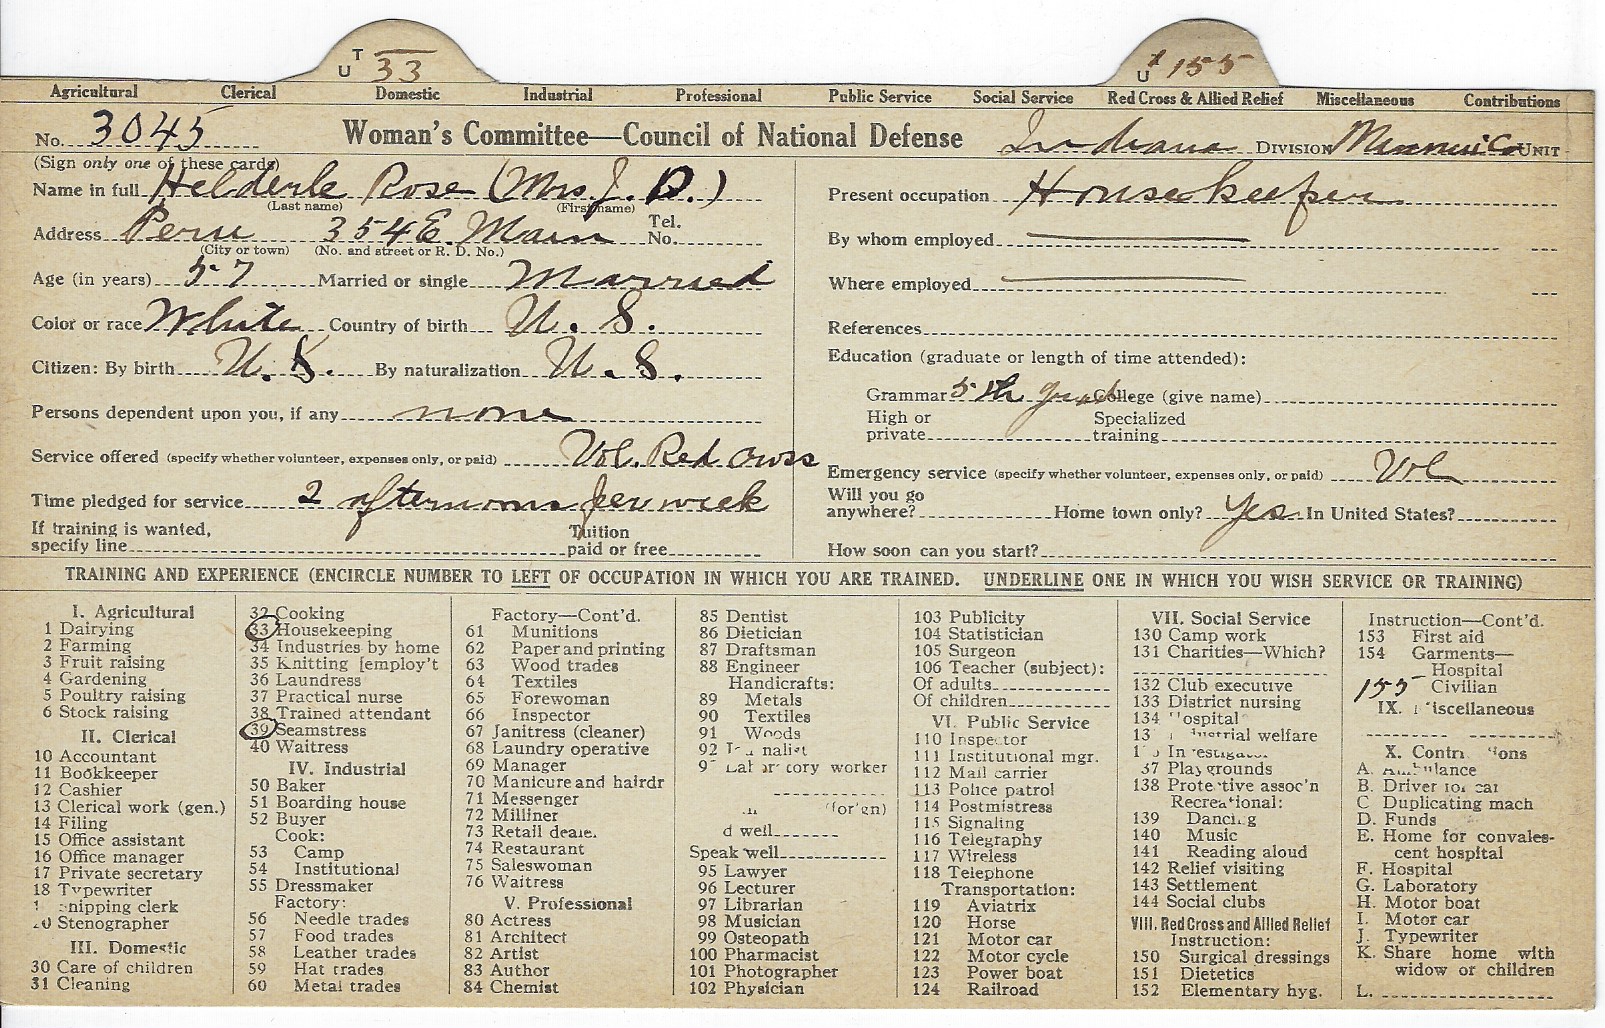 T
U 33
U 155
Agricultural Clerical Domestic Industrial Professional Public Service Social Service Red Cross & Allied Relief Miscellaneous Contributions
No. 3045 Woman's Committee—Council of National Defense Indiana DIVISION Miami Co UNIT
(Sign only one of these cards)
Name in full Helderle Rose (Mrs. J. D.)
(Last name) (First name)
Address Peru 354 E. Main Tel. No.
(City or town) (No. and street or R. D. No.)
Age (in years) 57 Married or single Married
Color or race White Country of birth U. S.
Citizen: By birth U. S. By naturalization U. S.
Persons dependent upon you, if any none
Service offered (specify whether volunteer, expenses only, or paid) Vol. Red Cross
Time pledged for service 2 afternoons per week
If training is wanted, specify line Tuition paid or free
Present occupation Housekeeper
By whom employed
Where employed
References
Education (graduate or length of time attended):
Grammar 5th grade College (give name)
High or private Specialized training
Emergency service (specify whether volunteer, expenses only, or paid) Vol
Will you go anywhere? Home town only? Yes In United States?
How soon can you start?
TRAINING AND EXPERIENCE (ENCIRCLE NUMBER TO LEFT OF OCCUPATION IN WHICH YOU ARE TRAINED. UNDERLINE ONE IN WHICH YOU WISH SERVICE OR TRAINING)
I. Agricultural
1 Dairying
2 Farming
3 Fruit raising
4 Gardening
5 Poultry raising
6 Stock raising
II. Clerical
10 Accountant
11 Bookkeeper
12 Cashier
13 Clerical work (gen.)
14 Filing
15 Office assistant
16 Office manager
17 Private secretary
18 Typewriter
clerk
Stenographer
III. Domestic
30 Care of children
31 Cleaning
32 Cooking
33 Housekeeping
34 Industries by home
35 Knitting [employ't
36 Laundress
37 Practical nurse
38 Trained attendant
39 Seamstress
40 Waitress
IV. Industrial
50 Baker
51 Boarding house
52 Buyer
Cook:
53 Camp
54 Institutional
55 Dressmaker
Factory:
56 Needle trades
57 Food trades
58 Leather trades
59 Hat trades
60 Metal trades
Factory—Cont'd.
61 Munitions
62 Paper and printing
63 Wood trades
64 Textiles
65 Forewoman
66 Inspector
67 Janitress (cleaner)
68 Laundry operative
69 Manager
70 Manicure and hairdr
71 Messenger
72 Milliner
73 Retail deale.
74 Restaurant
75 Saleswoman
76 Waitress
V. Professional
80 Actress
81 Architect
82 Artist
83 Author
84 Chemist
85 Dentist
86 Dietician
87 Draftsman
88 Engineer
Handicrafts:
89 Metals
90 Textiles
91 Woods
92
worker
well
Speak well
95 Lawyer
96 Lecturer
97 Librarian
98 Musician
99 Osteopath
100 Pharmacist
101 Photographer
102 Physician
103 Publicity
104 Statistician
105 Surgeon
106 Teacher (subject):
Of adults
Of children
VI. Public Service
110 Inspector
111 Institutional mgr.
112 Mail carrier
113 Police patrol
114 Postmistress
115 Signaling
116 Telegraphy
117 Wireless
118 Telephone
Transportation:
119 Aviatrix
120 Horse
121 Motor car
122 Motor cycle
123 Power boat
124 Railroad
VII. Social Service
130 Camp work
131 Charities—Which?
132 Club executive
133 District nursing
134
welfare
37 Playgrounds
138 Protective assoc'n
Recreational:
139 Dancing
140 Music
141 Reading aloud
142 Relief visiting
143 Settlement
144 Social clubs
VIII. Red Cross and Allied Relief
Instruction:
150 Surgical dressings
151 Dietetics
152 Elementary hyg.
Instruction—Cont'd.
153 First aid
154 Garments—
Hospital
155 Civilian
IX. Miscellaneous
X. Contributions
A. Ambulance
B. Driver for car
C Duplicating mach
D. Funds
E. Home for convalescent hospital
F. Hospital
G. Laboratory
H. Motor boat
I. Motor car
J. Typewriter
K. Share home with widow or children
L.